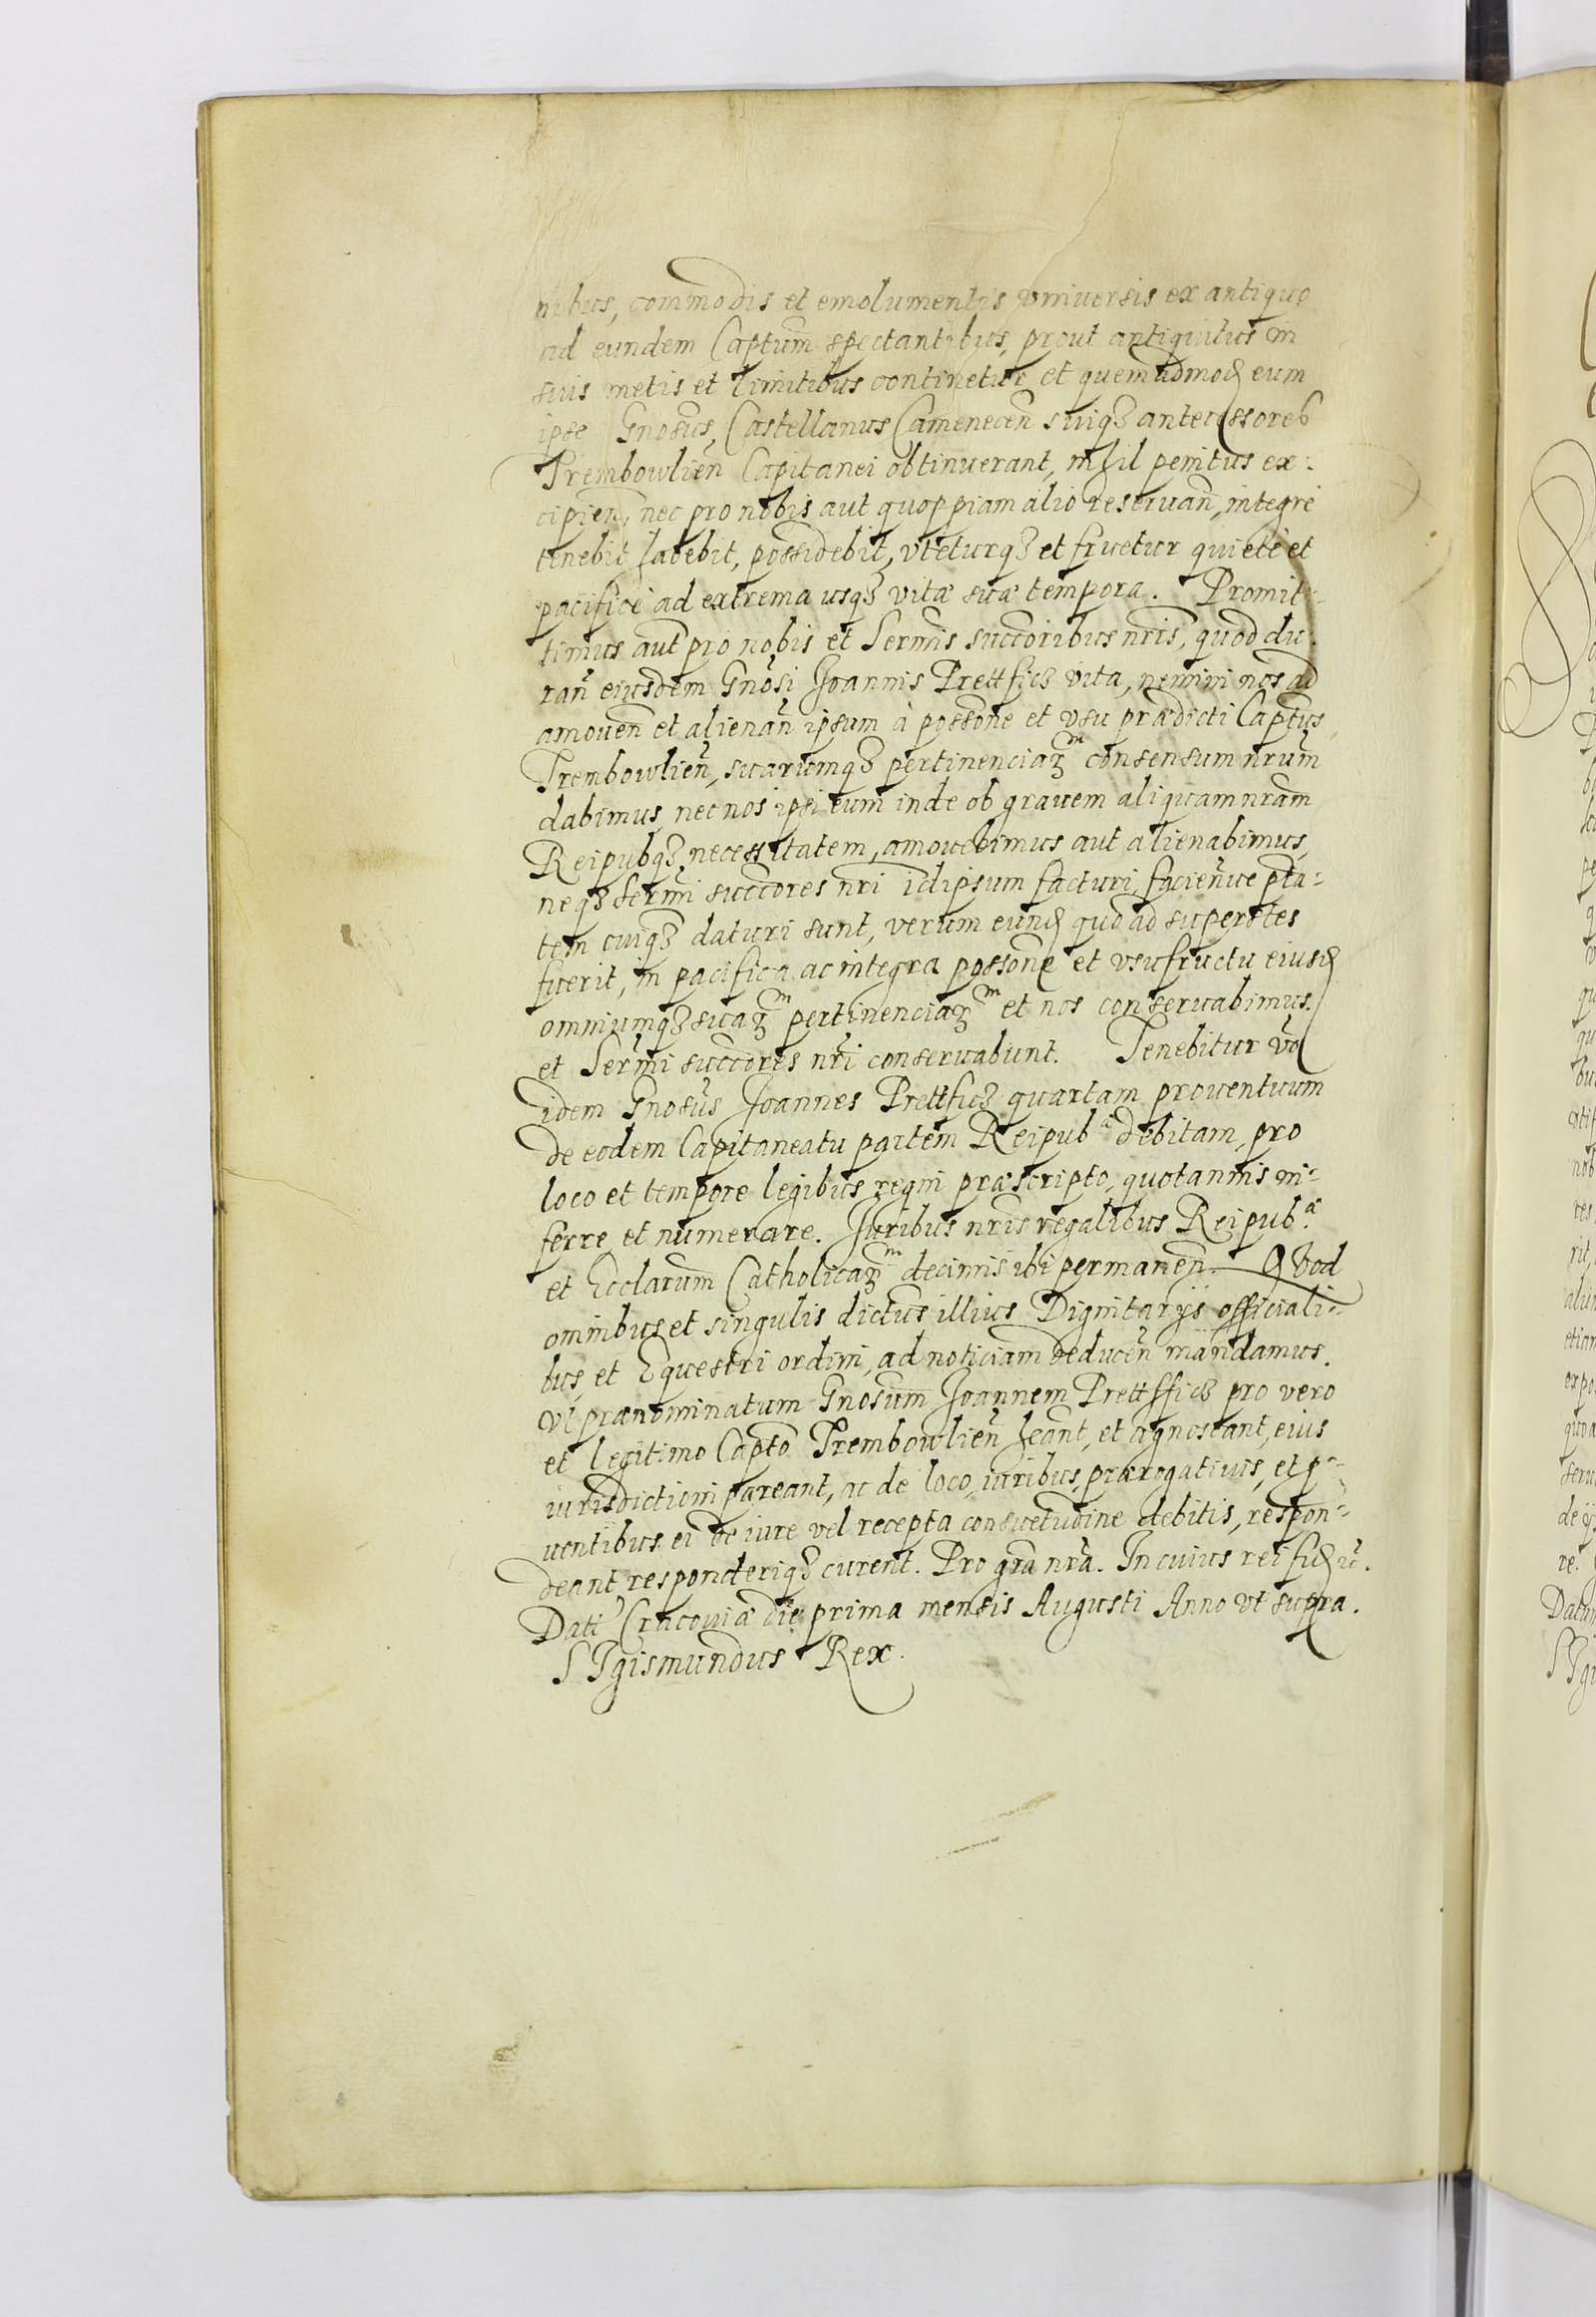 nibus, commodis et emolumentis vniuersis ex antiquo
ad eundem Captum̃ spectantibus, prout antiquitus in
suis metis et limitibus continetur et quemadmoꝺ eum
ipse Gnosus, Castellanus Camenecen̄ suiqꝫ antecessores
Trembowlien̄ Capitanei obtinuerant, nihil penitus ex:
cipien̄, nec pro nobis aut quoppiam alio reseruan̄, integrè
tenebit habebit, possidebit, vteturqꝫ et fruetur quietè et
pacificè ad extrema usqꝫ vitæ suæ tempora. Promit-
timus aut̃ pro nobis et Serm̃is succoribus nr̃is, quod du:
ran̄ eiusdem Gnosi Joannis Prettficz vita, nemini nos ad
amouen̄ et alienan̄ ipsum à possone et vsu prædicti Captus
Trembowlien̄, suarumqꝫ pertinenciaꝝᵐ consensum nrum̃
dabimus nec nos ipsi eum inde ob grauem aliquam nram̃
Reipubqꝫ necessitatem, amouebimus aut alienabimus,
neqꝫ Sermi succores nri idipsum facturi, facien̄ue pta:
tem cuiqꝫ daturi sunt, verum eunꝺ quoad superstes
fuerit, in pacifica ac integra possone et vsufructu eiusꝺ
omniumqꝫ suaꝝᵐ pertinenciaꝝᵐ et nos conseruabimus.
et Serm̃i succores nr̃i conseruabunt. Tenebitur vo
idem Gnosus Joannes Prettficz quartam prouentuum
de eodem Capitaneatu partem Reipub.ᵃᵉ debitam, pro
loco et tempore legibus regni præscripto, quotannis in-
ferre et numerare. Juribus nr̃is regalibus Reipub.ᵃᵉ
et Ecclarum̃ Catholicaꝝᵐ decimis ibi permanen̄. QVod
omnibus et singulis dictus illius Dignitarijs officiali-
bus, et Equestri ordini, ad noticiam deducen̄ mandamus.
Vt prænominatum Gnosum̃ Joannem Prettfficz pro vero
et legitimo Capto Trembowlien̄ heant, et agnoscant, eius
iurisdictioni pareant, ac de loco, iuribus, prærogatiuis, et p-
uentibus ei de iure vel recepta consuetudine debitis, respon-
deant, responderiqꝫ curent. Pro gra nr̃a. In cuius rei fiꝺ ẽ.
Datt Cracouiæ die prima mensis Augusti Anno vt supra.
SIgismundus Rex.